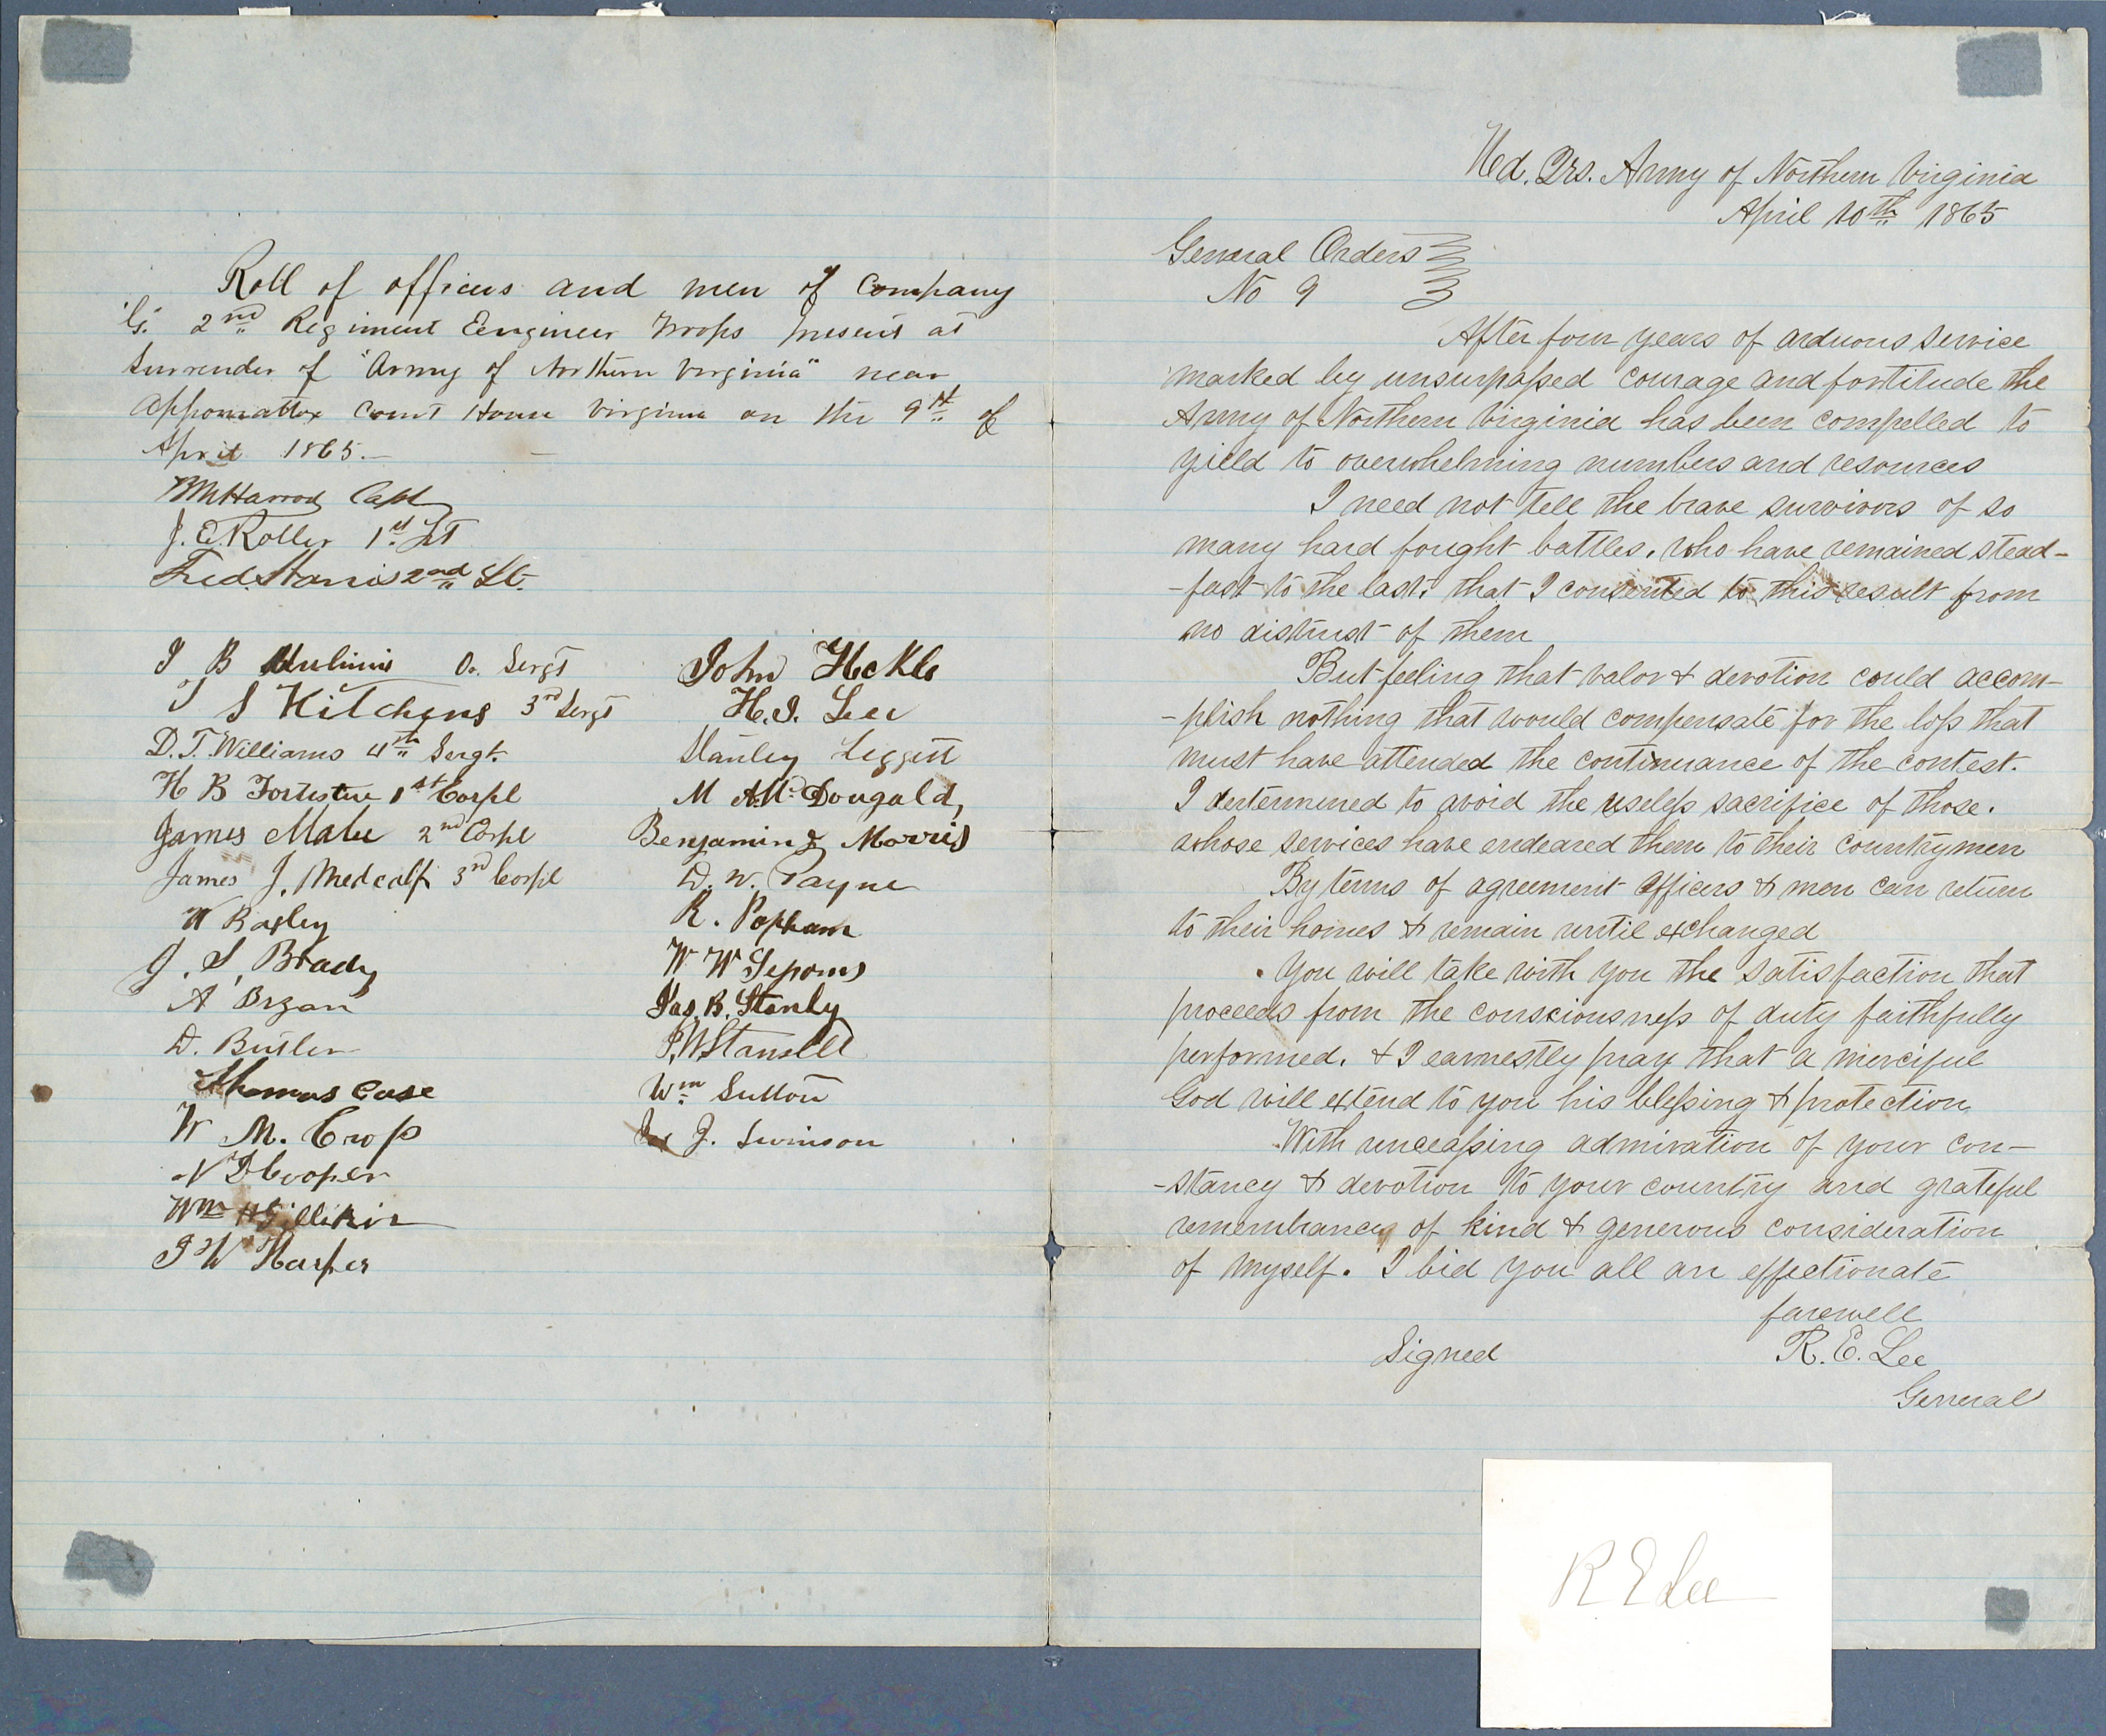 Roll of officers and men of Company
"G." 2nd Regiment Eengineer Troops present at
surrender of "Army of Northern Virginia" near
Appomattox Court House Virginia on the 9th of
April 1865.—
Harrod Capt
J. E. Roller 1st Lt
Fred. Harris 2nd Lt.
J B O. Sergt
J S Kitchens 3rd Sergt
D. T. Williams 4th Sergt.
H B 1st Corpl
James 2nd Corpl
James J. Medcalf 3rd Corpl
W Bagley
J. S. Brady
A Bryan
D. Butler
Thomas Case
W M. Crop
N D Cooper
Wm H Gillikin
J W Harper
John Heckle
H. J. Lee
Stanley Leggett
M A. Mc Dougald,
Benjamin J Morris
D. W. Payne
R. Popham
W W
Jas. B. Stanly
Wm Sutton
J. Swinson
Hed. Qrs. Army of Northern Virginia
April 10th 1865
General Orders
No 9
After four years of arduous service
marked by unsurpassed courage and fortitude the
Army of Northern Virginia has been compelled to
yield to overwhelming numbers and resources
I need not tell the brave survivors of so
many hard fought battles, who have remained stead-
-fast to the last, that I consented to this result from
no distrust of them
But feeling that valor & devotion could accom-
-plish nothing that would compensate for the loss that
must have attended the continuance of the contest.
I dertermined to avoid the useless sacrifice of those.
whose services have endeared them to their countrymen
By terms of agreement officers & men can return
to their homes & remain until exchanged
. You will take with you the satisfaction that
proceeds from the consciousness of duty faithfully
performed. & I earnestly pray that a merciful
God will extend to you his blessing & protection
With unceassing admiration of your con-
-stancy & devotion to your country and grateful
remembrances of kind & generous consideration
of myself. I bid you all an effectionate
farewell
Signed R. E. Lee
General
R E Lee